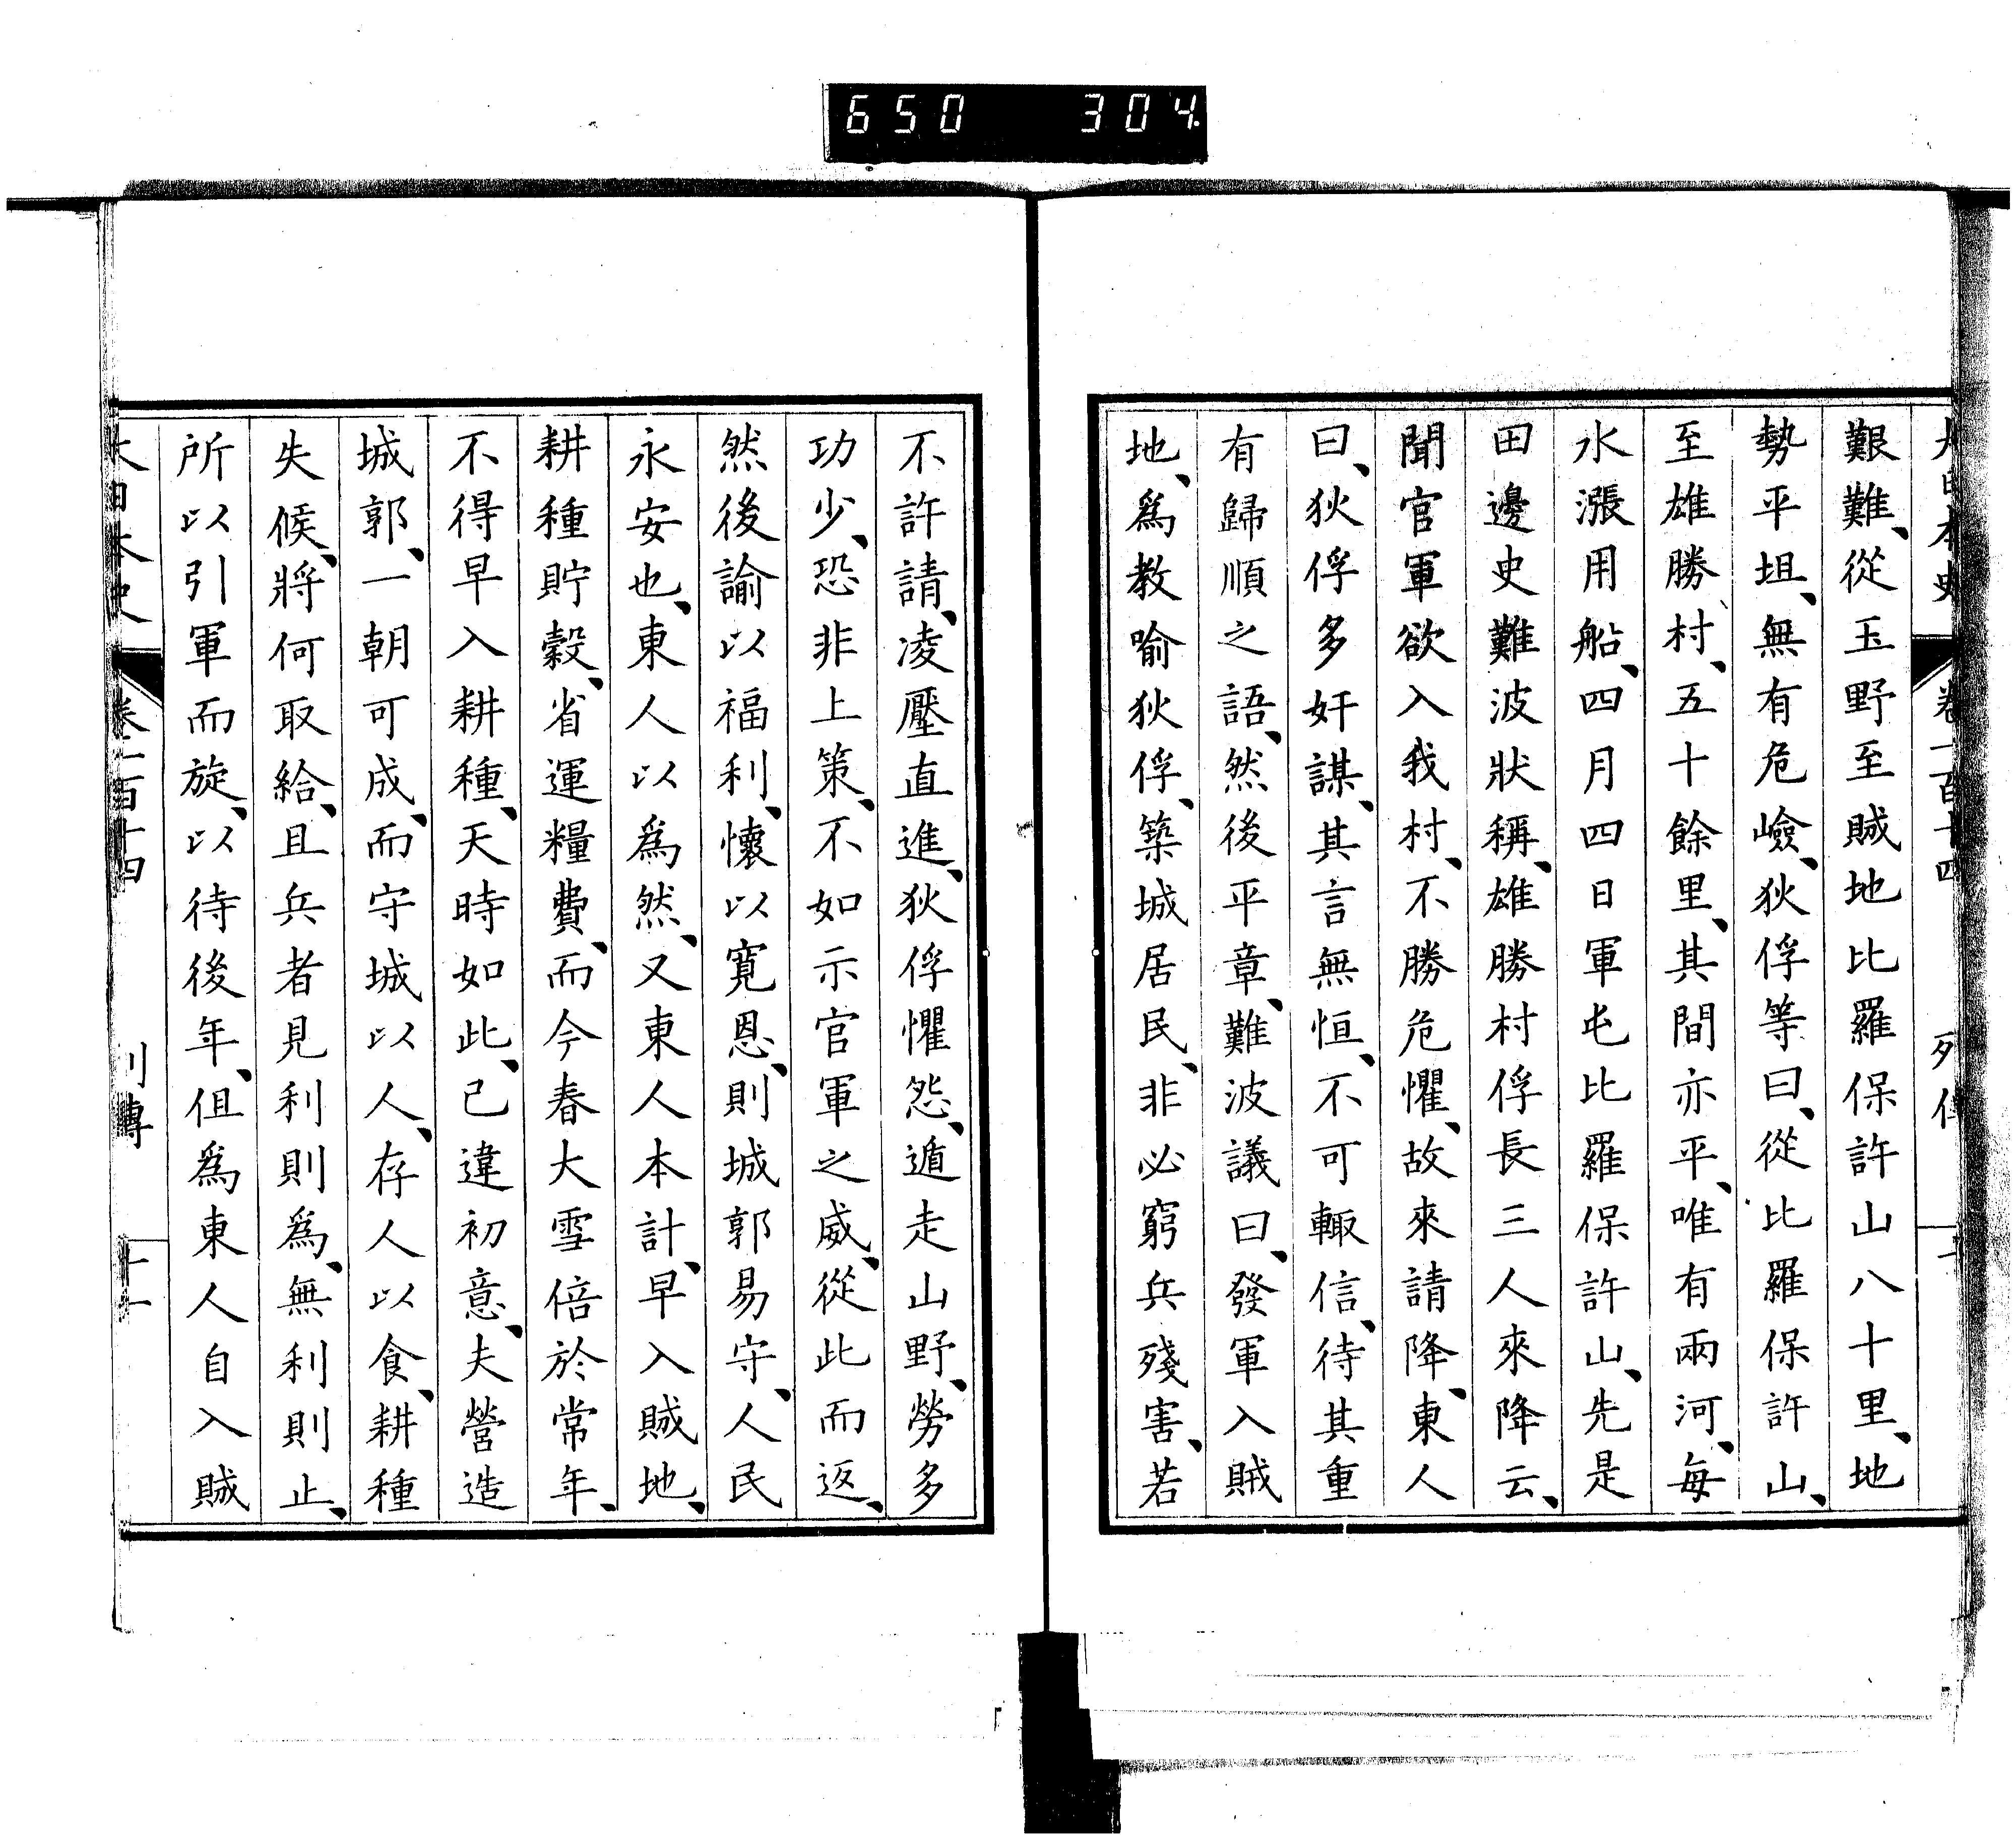 650 304
大日本史 卷一百十四 列傳 十
艱難、從玉野至賊地比羅保許山八十里、地
勢平坦、無有危嶮、狄俘等曰、從比羅保許山、
至雄勝村、五十餘里、其間亦平、唯有兩河、每
水漲用船、四月四日軍屯比羅保許山、先是
田邊史難波狀稱、雄勝村俘長三人來降云、
聞官軍欲入我村、不勝危懼、故來請降、東人
曰、狄俘多奸謀、其言無恒、不可輙信、待其重
有歸順之語、然後平章、難波議曰、發軍入賊
地、爲教喻狄俘、築城居民、非必窮兵殘害、若
不許請、凌壓直進、狄俘懼怨、遁走山野、勞多
功少、恐非上策、不如示官軍之威、從此而返、
然後諭以福利、懷以寛恩、則城郭易守、人民
永安也、東人以爲然、又東人本計、早入賊地、
耕種貯穀、省運糧費、而今春大雪倍於常年、
不得早入耕種、天時如此、已違初意、夫營造
城郭、一朝可成、而守城以人、存人以食、耕種
失候、將何取給、且兵者見利則爲、無利則止、
所以引軍而旋、以待後年、但爲東人自入賊
大日本史 卷一百十四 列傳 十一